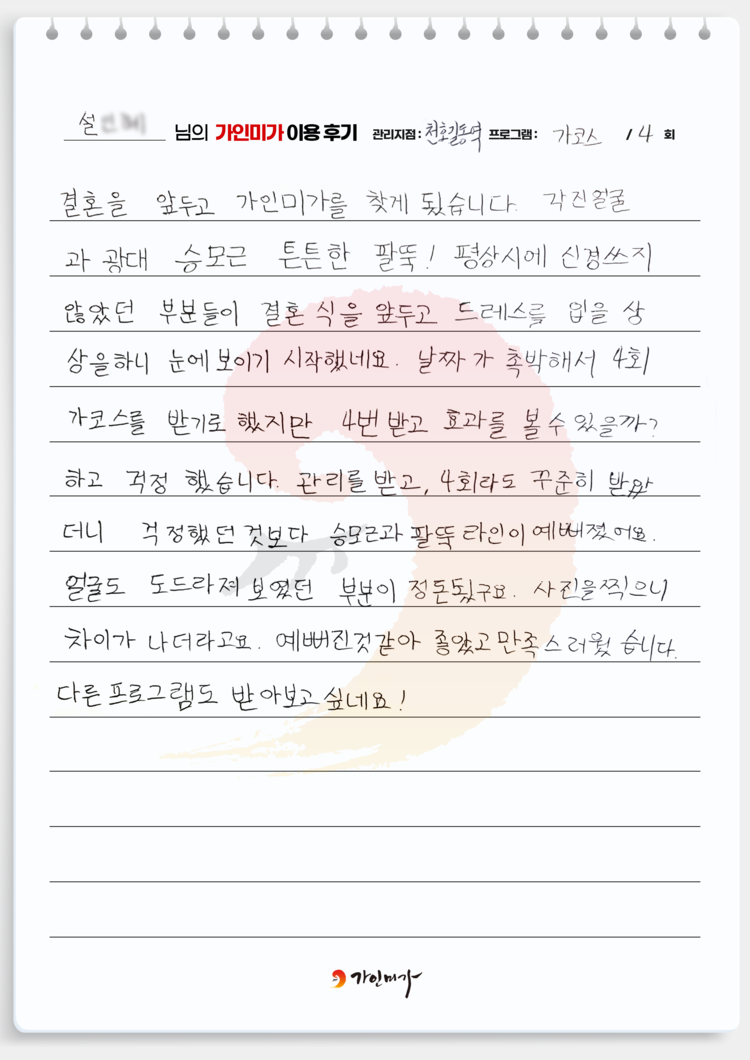 설
님의 가인미가 이용 후기 관리지점 : 천호길동역 프로그램 : 가코스 / 4 회
결혼을 앞두고 가인미가를 찾게 됬습니다. 각진얼굴
과 광대 승모근 튼튼한 팔뚝! 평상시에 신경쓰지
않았던 부분들이 결혼식을 앞두고 드레스를 입을 상
상을하니 눈에보이기 시작했네요. 날짜가 촉박해서 4회
가코스를 받기로 했지만 4번 받고 효과를 볼 수 있을까?
하고 걱정 했습니다. 관리를 받고, 4회라도 꾸준히 받았
더니 걱정했던 것보다 승모근과 팔뚝 라인이 예뻐졌어요.
얼굴도 도드라져 보였던 부분이 정돈됬구요. 사진을찍으니
차이가 나더라고요. 예뻐진것같아 좋았고 만족스러웠습니다.
다른 프로그램도 받아보고 싶네요!
가인미가